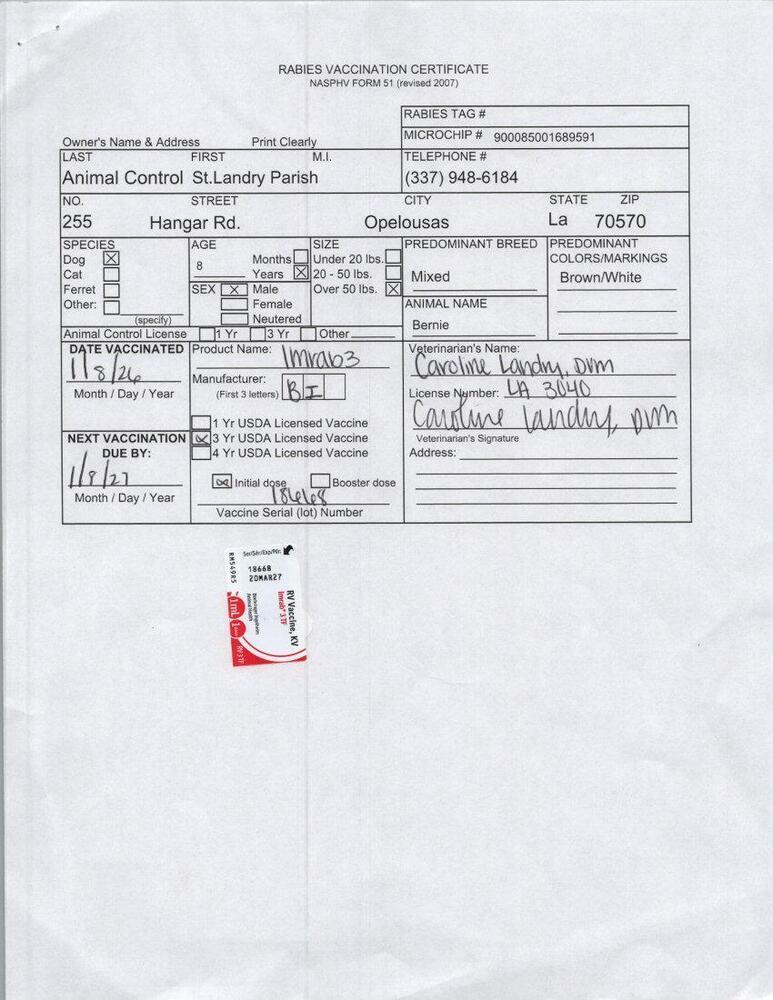 RABIES VACCINATION CERTIFICATE
NASPHV FORM 51 (revised 2007)
RABIES TAG #
MICROCHIP # 900085001689591
Owner's Name & Address Print Clearly
LAST FIRST M.I. TELEPHONE #
Animal Control St.Landry Parish (337) 948-6184
NO. STREET CITY STATE ZIP
255 Hangar Rd. Opelousas La 70570
SPECIES AGE SIZE PREDOMINANT BREED PREDOMINANT
COLORS/MARKINGS
Dog X Months Under 20 lbs.
Cat 8 Years X 20 - 50 lbs. Mixed Brown/White
Ferret SEX X Male Over 50 lbs. X
Other: Female ANIMAL NAME
(specify) Neutered Bernie
Animal Control License 1 Yr 3 Yr Other
DATE VACCINATED Product Name: Imrab3 Veterinarian's Name:
1/8/26 Caroline Landry, DVM
Month / Day / Year Manufacturer: BI
(First 3 letters) License Number: LA 3040
1 Yr USDA Licensed Vaccine Caroline Landry, DVM
NEXT VACCINATION 3 Yr USDA Licensed Vaccine Veterinarian's Signature
DUE BY: 4 Yr USDA Licensed Vaccine Address:
1/8/27 Initial dose Booster dose
Month / Day / Year 18668
Vaccine Serial (lot) Number
Ser/Sér/Exp/Pér:
18668
20MAR27
RM549R5
RV Vaccine, KV
Imrab® 3 TF
Boehringer Ingelheim
Animal Health
1mL 1
RV 3 TF